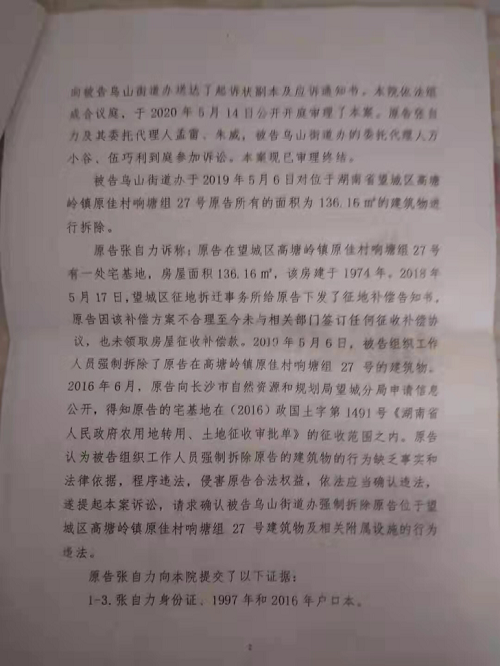 向被告乌山街道办送达了起诉状副本及应诉通知书。本院依法组
成合议庭，于 2020 年 5 月 14 日公开开庭审理了本案。原告张自
力及其委托代理人孟雷、朱威，被告乌山街道办的委托代理人万
小谷、伍巧利到庭参加诉讼。本案现已审理终结。
被告乌山街道办于 2019 年 5 月 6 日对位于湖南省望城区高塘
岭镇原佳村响塘组 27 号原告所有的面积为 136.16 ㎡的建筑物进
行拆除。
原告张自力诉称：原告在望城区高塘岭镇原佳村响塘组 27 号
有一处宅基地，房屋面积 136.16 ㎡，该房建于 1974 年。2018 年
5 月 17 日，望城区征地拆迁事务所给原告下发了征地补偿告知书，
原告因该补偿方案不合理至今未与相关部门签订任何征收补偿协
议，也未领取房屋征收补偿款。2019 年 5 月 6 日，被告组织工作
人员强制拆除了原告在高塘岭镇原佳村响塘组 27 号的建筑物。
2016 年 6 月，原告向长沙市自然资源和规划局望城分局申请信息
公开，得知原告的宅基地在（2016）政国土字第 1491 号《湖南省
人民政府农用地转用、土地征收审批单》的征收范围之内。原告
认为被告组织工作人员强制拆除原告的建筑物的行为缺乏事实和
法律依据，程序违法，侵害原告合法权益，依法应当确认违法，
遂提起本案诉讼，请求确认被告乌山街道办强制拆除原告位于望
城区高塘岭镇原佳村响塘组 27 号建筑物及相关附属设施的行为
违法。
原告张自力向本院提交了以下证据：
1-3.张自力身份证、1997 年和 2016 年户口本。